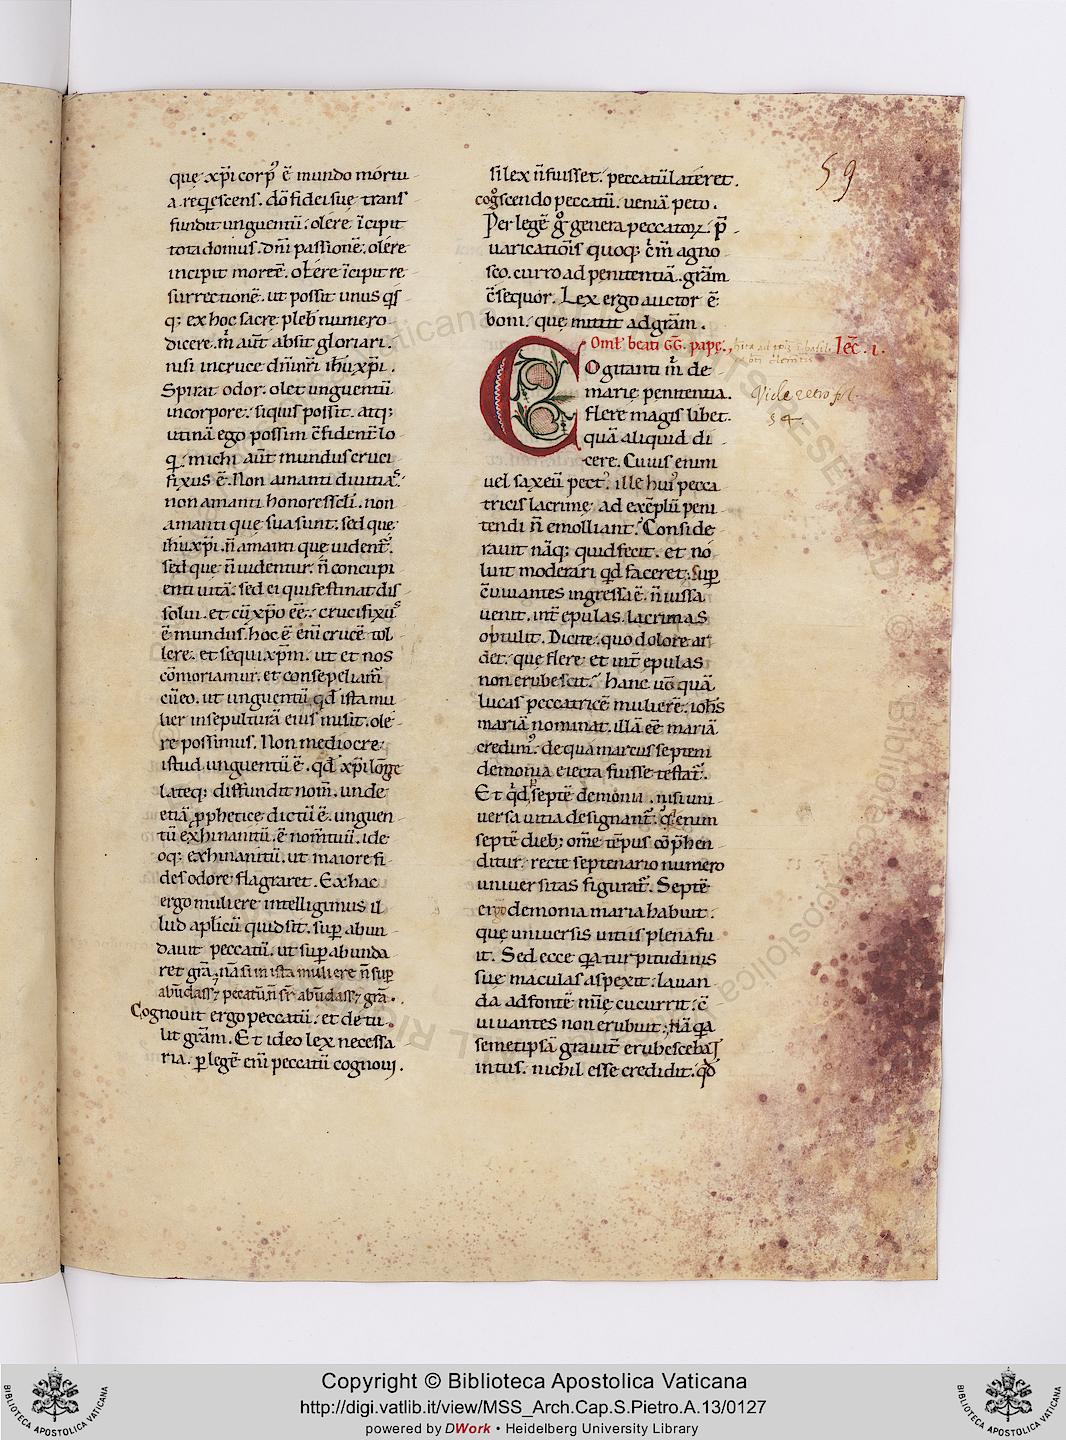 59
quę xp̄i corp᷒ ē mundo mortu
a reqͥescens. dōˢ fidei sue trans
fundit unguentū. olere īcipit
tota domus. dn̄i passionē. olére
incipit mortē. olére īcipit re
surrectionē. ut possit unus qͥsͨ
q; ex hoc sacre pleb᷒ numero
dicere. m̄ aūt absit gloriari.
nisi in cruce dn̄i nr̄i ih̄u xp̄i.
Spirat odor. olet unguentū
in corpore. siquis possit. atq;
utinā ego possim c̄fident̄ lo
qͥ. michi aūt mundus cruci
fixus ē. Non amanti diuitiaˢ.
non amanti honores scl̄i. non
amanti quę sua sunt. sed quę
ih̄u xp̄i. n̄ amanti quę uident᷒.
sed quę n̄ uidentur. n̄ concupi
enti uitā. sed ei qui festinat dis
solui. et cū xp̄o eē. crucifixuˢ
ē mundus. hoc ē eni᷒ crucē tol
lere. et sequi xp̄m. ut et nos
cōmoriamur. et consepeliam᷒
cū eo. ut unguentū qd̄ ista mu
lier in sepulturā eius misit. olé
re possimus. Non mediocre
istud unguentū ē. qd̄ xp̄i longe
lateq; diffundit nom̄. unde
etiā ꝓphetice dictū ē. unguen
tū exhinanitū. ē nom̄ tuū. ide
oq; exhinanitū. ut maiore fi
des odore flagraret. Ex hac
ergo muliere intelligimus il
lud apl̄icū quid sit. suꝑ abun
dauit peccatū. ut suꝑ abunda
ret grā. nā si in ista muliere n̄ suꝑ
abūdass⁊ pecatū. n̄ sr̄ abūdass⁊ grā.
Cognouit ergo peccatū. et detu
lit grām. Et ideo lex necessa
ria. ꝑ legē eni᷒ peccatū cognoui.
si lex n̄ fuisset. peccatū lateret.
cogͦscendo peccatū. ueniā peto.
Per legē gͦ genera peccatoꝝ. p̄
uaricatiōis quoq; c̄m̄ agno
sco. curro ad penitentiā. grām
c̄sequor. Lex ergo auctor ē
boni. quę mittit ad grām.
Oml᷒ beati GG. pape. lec̄. i.
COgitanti m̄ de
marię penitentia.
flere magis libet.
quā aliquid di
cere. Cuius enim
uel saxeū pect᷒. ille hui᷒ pecca
tricis lacrimę ad exēplū peni
tendi n̄ emolliant. Conside
rauit nāq; quid fecit. et no
luit moderari qd̄ faceret. Suꝑ
c̄uiuantes ingressa ē. n̄ iussa
uenit. int̄ epulas lacrimas
optulit. Dicite. quo dolore ar
det. que flere et int̄ epulas
non erubescit. Hanc uͦ quā
lucas peccatricē mulierē. ioh̄s
mariā nominat. illā eē mariā
credim᷒. de qua marcus septem
demonia eiecta fuisse testat᷒.
Et qͥd ꝑ septē demonia. nisi uni
uersa uitia designant᷒. qͥa enim
septē dieb; om̄e tēpus cōp̄hen
ditur. recte septenario numero
uniuersitas figurat᷒. Septē
ergo demonia maria habuit.
quę uniuersis uitiis plena fu
it. Sed ecce qͥa turpitudinis
suę maculas aspexit. lauan
da ad fontē mīe cucurrit. c̄
uiuantes non erubuit. nā qͥa
semetipsā grauit̄ erubescebat
intus. nichil esse credidit. qd̄
Vide retro fol.
54.
Copyright © Biblioteca Apostolica Vaticana
http://digi.vatlib.it/view/MSS_Arch.Cap.S.Pietro.A.13/0127
powered by DWork • Heidelberg University Library
BIBLIOTECA APOSTOLICA VATICANA
BIBLIOTECA APOSTOLICA VATICANA